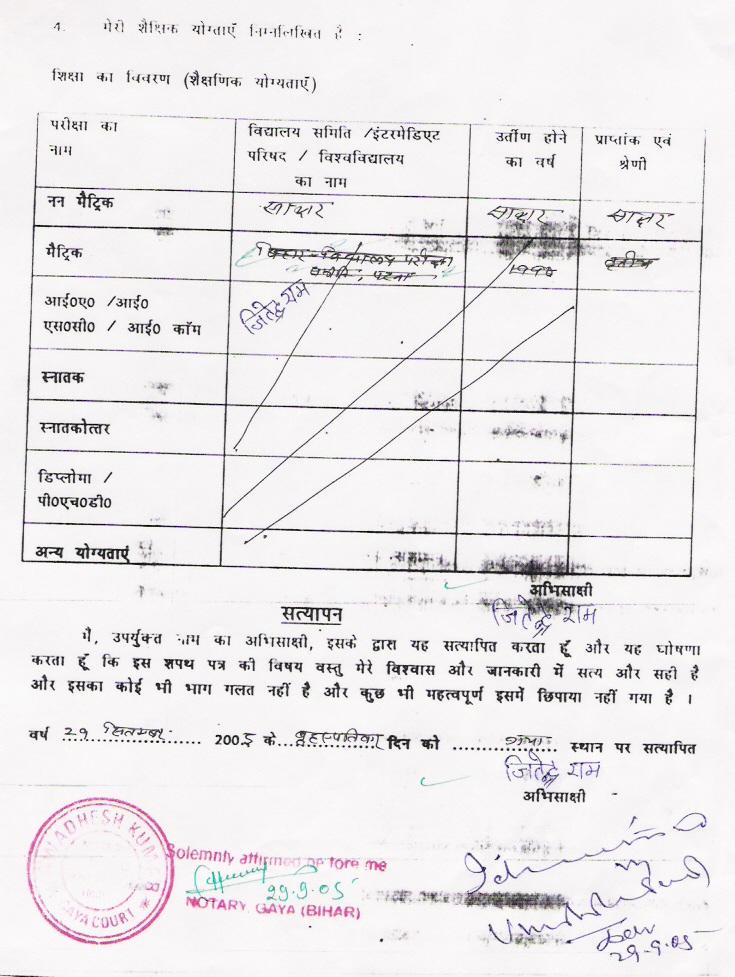 4. मेरी शैक्षिक योग्ताएँ निम्नलिखित है :
शिक्षा का विवरण (शैक्षणिक योग्यताएँ)
परीक्षा का नाम
विद्यालय समिति /इंटरमेडिएट परिषद / विश्वविद्यालय का नाम
उर्तीण होने का वर्ष
प्राप्तांक एवं श्रेणी
नन मैट्रिक साक्षर साक्षर साक्षर
मैट्रिक
आई०ए० /आई०
एस०सी० / आई० कॉम
जितेन्द्र राम
स्नातक
स्नातकोत्तर
डिप्लोमा /
पी०एच०डी०
अन्य योग्यताएं
अभिसाक्षी
जितेन्द्र राम
सत्यापन
मै, उपर्युक्त नाम का अभिसाक्षी, इसके द्वारा यह सत्यापित करता हूँ और यह घोषणा
करता हूँ कि इस शपथ पत्र की विषय वस्तु मेरे विश्वास और जानकारी में सत्य और सही है
और इसका कोई भी भाग गलत नहीं है और कुछ भी महत्वपूर्ण इसमें छिपाया नहीं गया है ।
वर्ष 29 सितम्बर 2005 के दिन को गया स्थान पर सत्यापित
जितेन्द्र राम
अभिसाक्षी
WADHESH KUM
GAYA COURT
Solemnly affirmed before me
29.9.05
NOTARY GAYA (BIHAR)
29-9-05